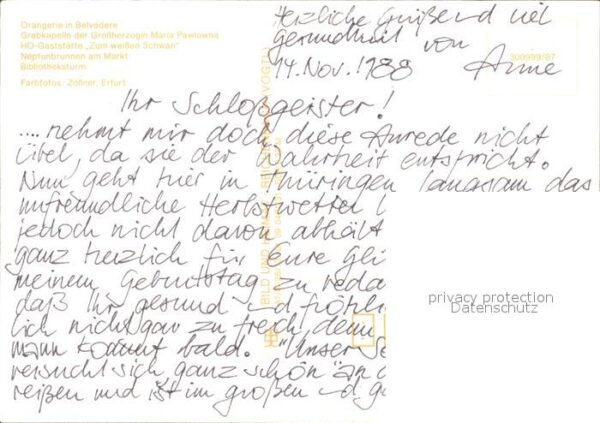 Orangerie in Belvedere
Grabkapelle der Großherzogin Maria Pawlowna
HO-Gaststätte „Zum weißen Schwan"
Neptunbrunnen am Markt
Bibliotheksturm
Farbfotos: Zöllner, Erfurt
Herzliche Grüße und viel
Gesundheit von
14. Nov. 1988 Anne
300999/87
Ihr Schloßgeister!
.... nehmt mir doch diese Anrede nicht
übel, da sie der Wahrheit entspricht.
Nun geht hier in Thüringen langsam das
unfreundliche Herbstwetter l
jedoch nicht davon abhält
ganz herzlich für Eure Glü
meinem Geburtstag zu beda
daß Ihr gesund und fröhli
ich nicht gar zu frech, denn
mann kommt bald. "Unser Se
versucht sich ganz schön an
reißen und ist im großen und ga
BILD UND HEIMAT REICHENBACH (VOGTL)
privacy protection
Datenschutz